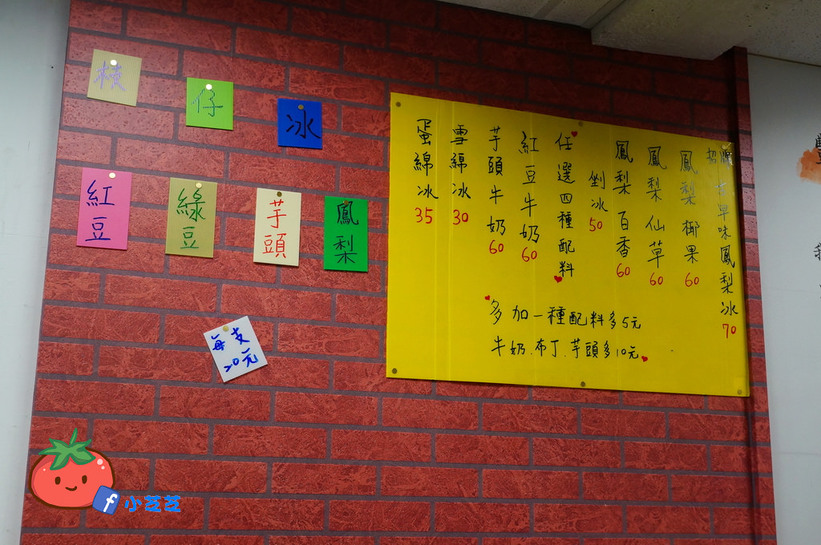 枝仔冰
紅豆
綠豆
芋頭
鳳梨
每支20元
招牌古早味鳳梨冰 70
鳳梨椰果 60
鳳梨仙草 60
鳳梨百香 60
剉冰 50
任選四種配料
紅豆牛奶 60
芋頭牛奶 60
雪綿冰 30
蛋綿冰 35
多加一種配料多5元
牛奶.布丁.芋頭多10元
f 小芝芝